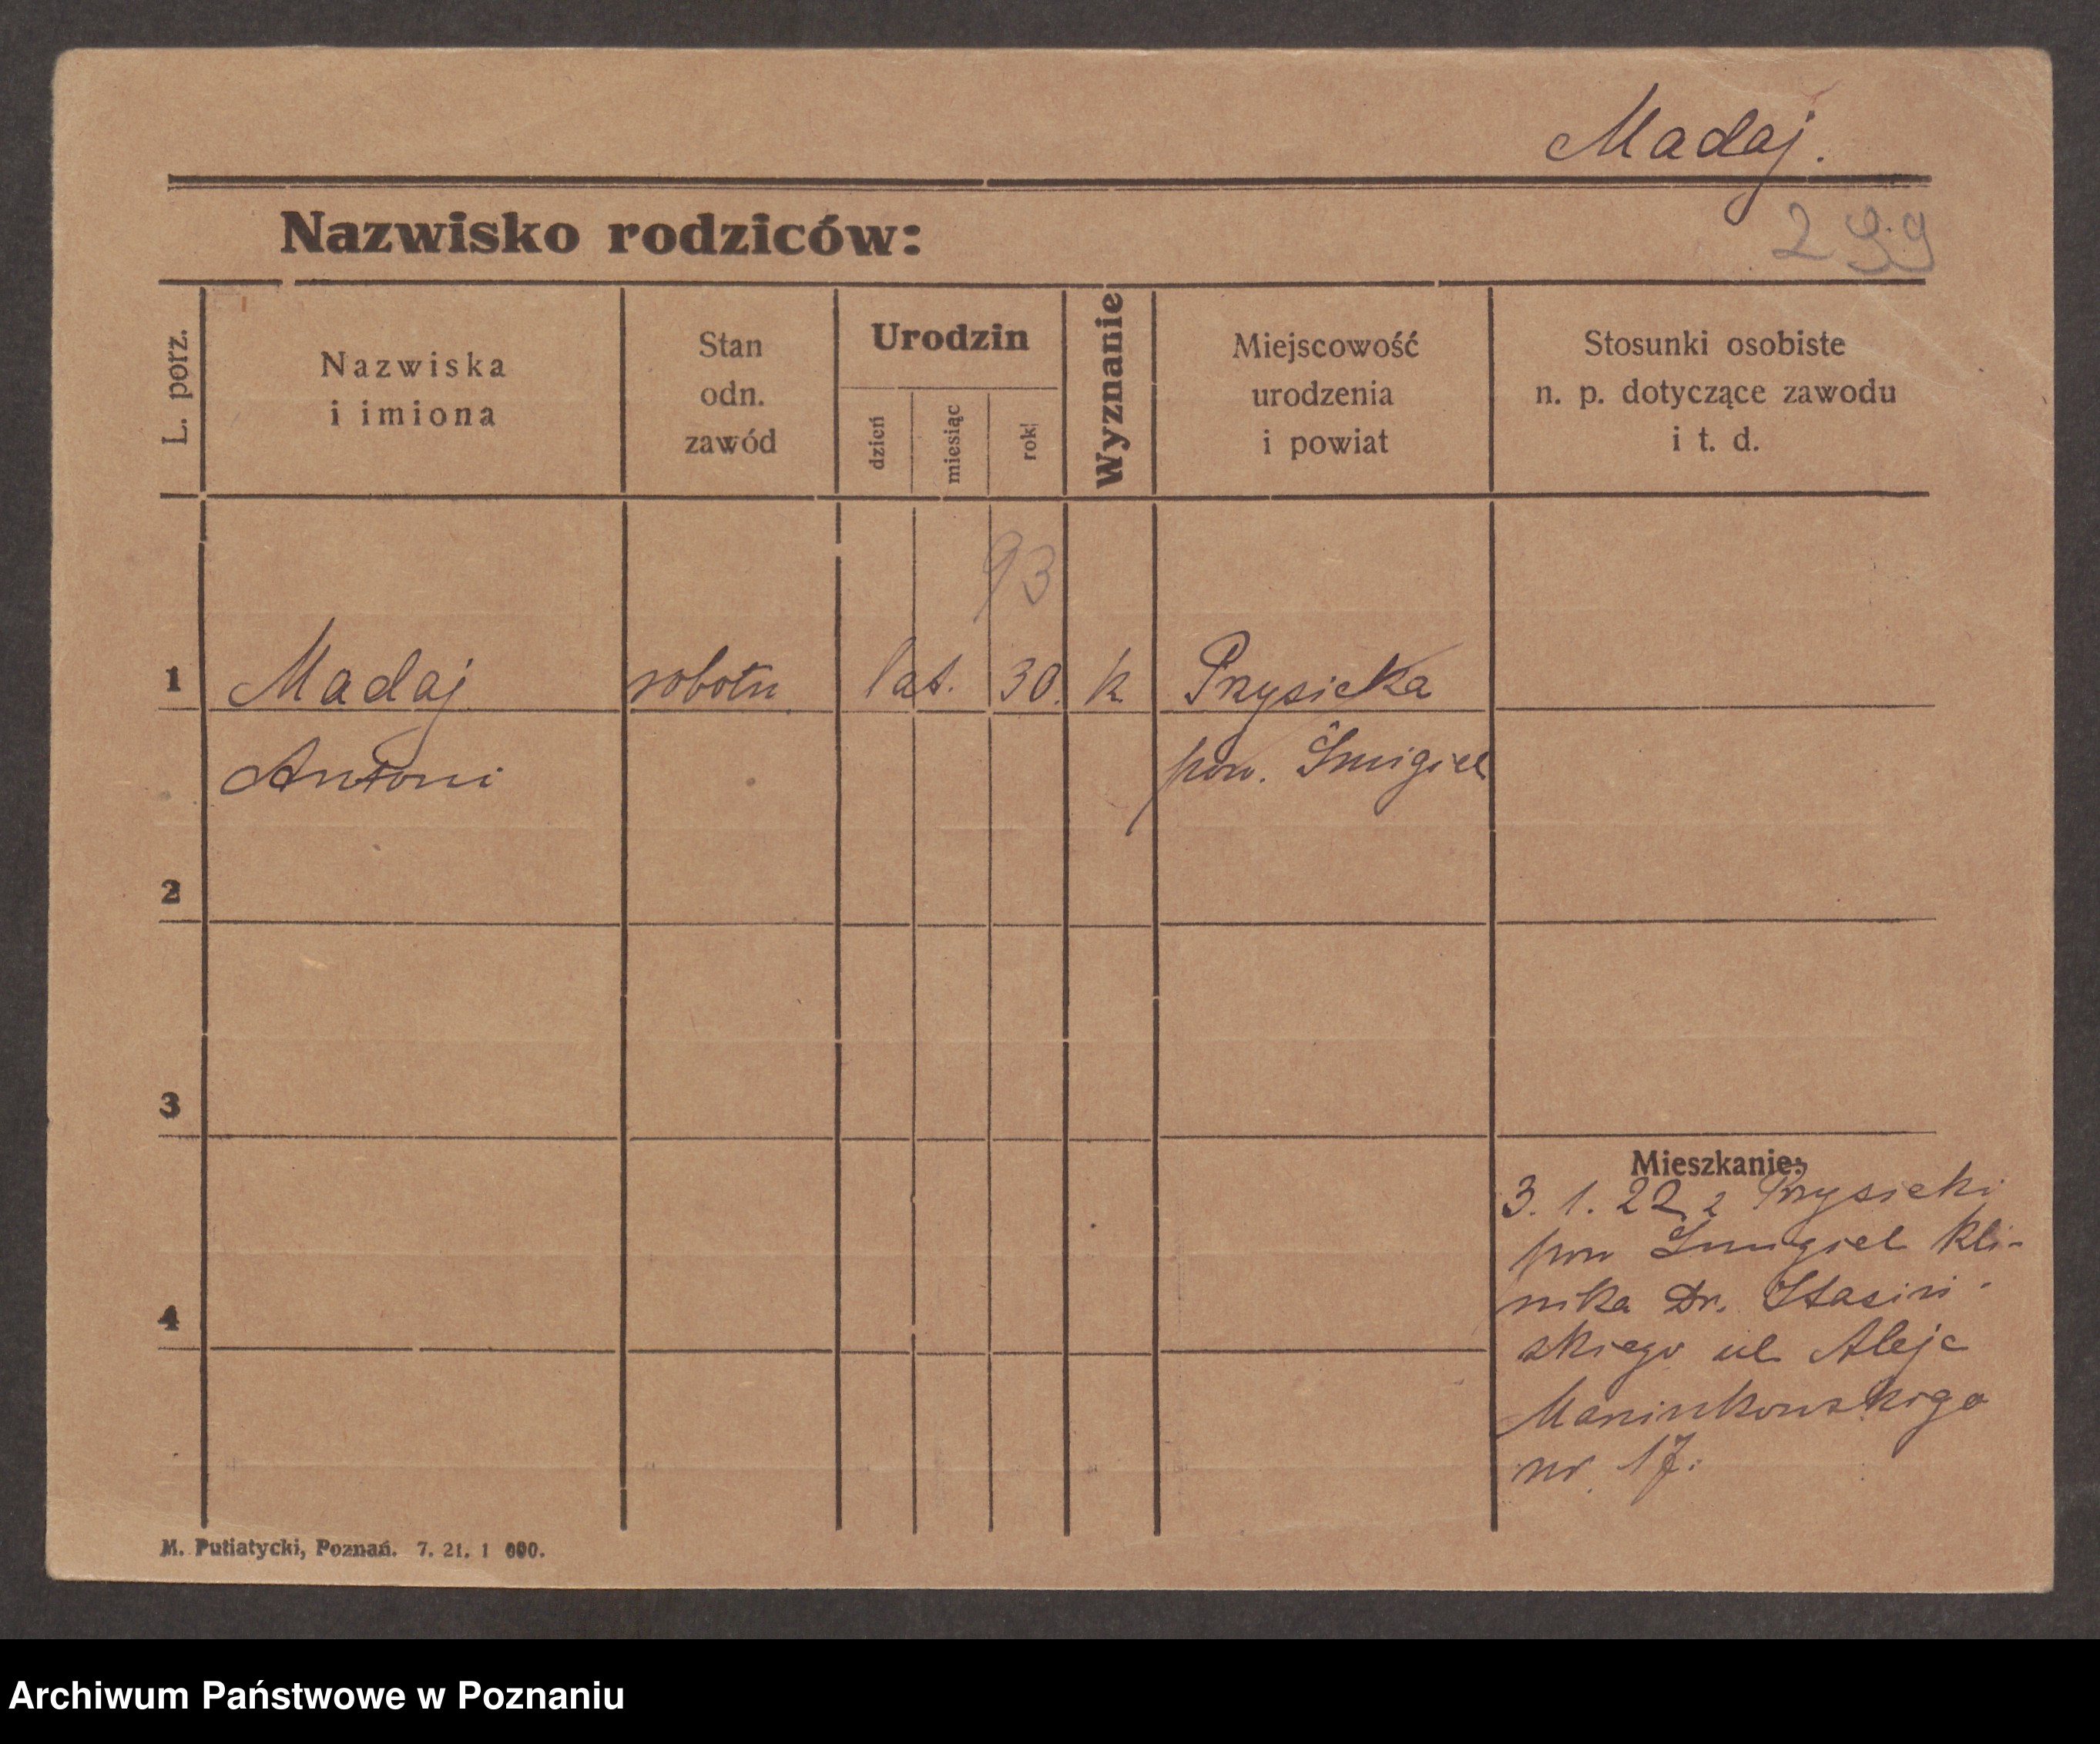 Madaj.
299
Nazwisko rodziców:
L. porz.
Nazwiska
i imiona
Stan
odn.
zawód
Urodzin
dzień
miesiąc
rok
Wyznanie
Miejscowość
urodzenia
i powiat
Stosunki osobiste
n. p. dotyczące zawodu
i t. d.
93
1 Madaj robotn lat. 30. k Przysieka
Antoni pow. Śmigiel
2
3
Mieszkanie:
3. 1. 22 z Przysieki
pow Śmigiel kli-
nika Dr. Stasiń-
4
skiego ul Aleje
Marcinkowskiego
nr 17.
M. Putiatycki, Poznań. 7. 21. 1 000.
Archiwum Państwowe w Poznaniu